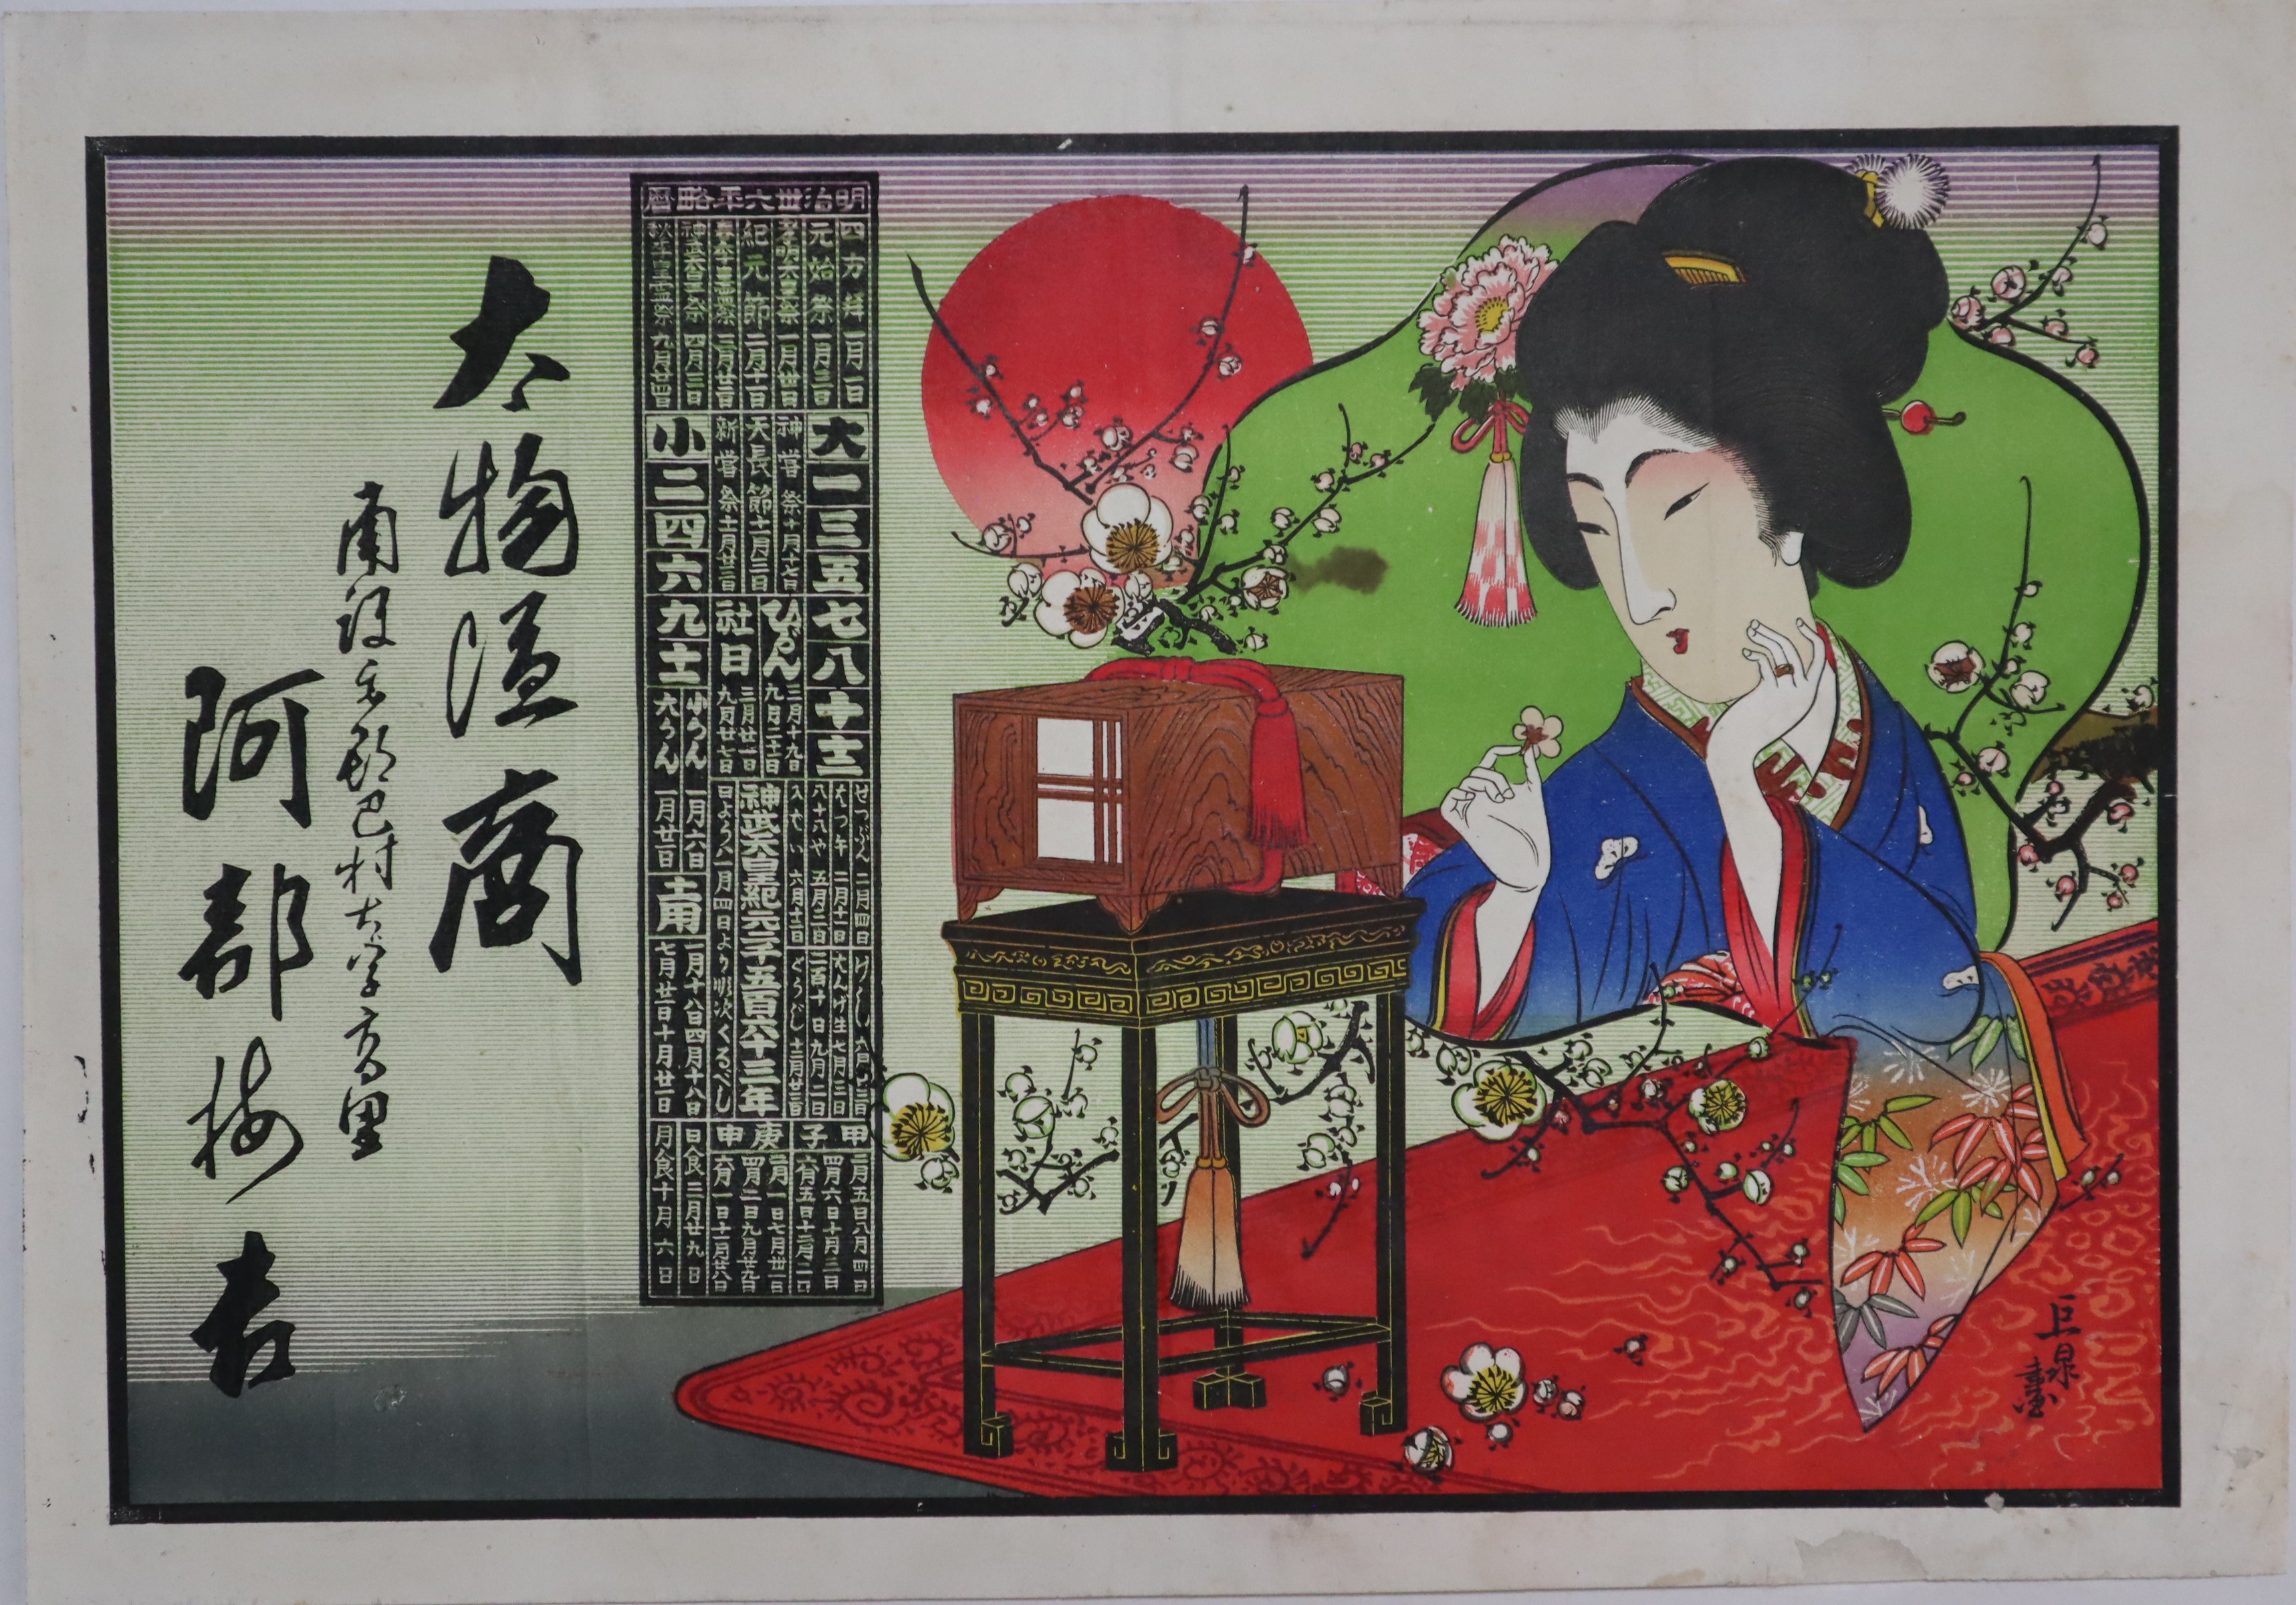 明治卅六年略暦
四方拝一月一日
元始祭一月三日
孝明天皇祭一月卅日
紀元節二月十一日
春季皇霊祭三月廿二日
神武天皇祭四月三日
秋季皇霊祭九月廿四日
神嘗祭十月十七日
天長節十一月三日
新嘗祭十一月廿三日
大一三五七八十十二
小二四六九十一
ひがん三月十九日
九月二十一日
社日三月廿一日
九月廿七日
小かん一月六日
大かん一月廿一日
せつぶん二月四日
はつ午二月十一日
八十八や五月三日
入ばい六月十二日
げし六月廿二日
はんげ生七月三日
二百十日九月二日
とうじ十二月廿三日
神武天皇紀元二千五百六十三年
日よう一月四日より順次くるべし
土用一月十八日四月十八日
七月廿一日十月廿二日
甲子二月五日八月四日
四月六日十月三日
六月五日十二月二日
庚申一月一日七月卅一日
日食三月廿九日
月食十月六日
太物商
阿部梅吉
巨泉画